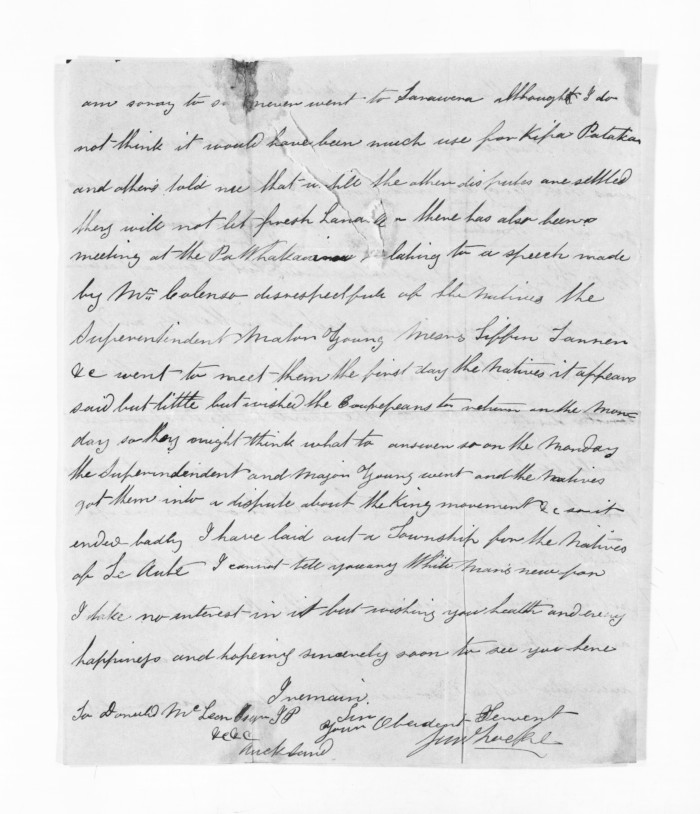 am soray to s never went to Tarawera although I do
not think it would have been much use for Kipa Patakar
and others told me that until the other disputes are settled
they will not let fresh Land there has also been
meeting at the Pa Whakairo relating to a speech made
by Mr Colenso disrespectful of the Natives the
Superentindent Mator Young Mesrs Tiffin Tanner
&c went to meet them the first day the Natives it appears
said but little but wished the Eourepeans to return on the Mon-
day so they might think what to answer so on the Monday
the Superindendent and Major Young went and the Natives
got them into a dispute about the King movement &c so it
ended badly I have laid out a Township for the Natives
of Te Aute I cannot tell you any White Mans news for
I take no interest in it but wishing you health and every
happiness and hopeing sincerely soon to see you here
I remain
To Donald McLean Esqr JP Sir
&c &c Your Obeident Servent
Auckland Saml Locke